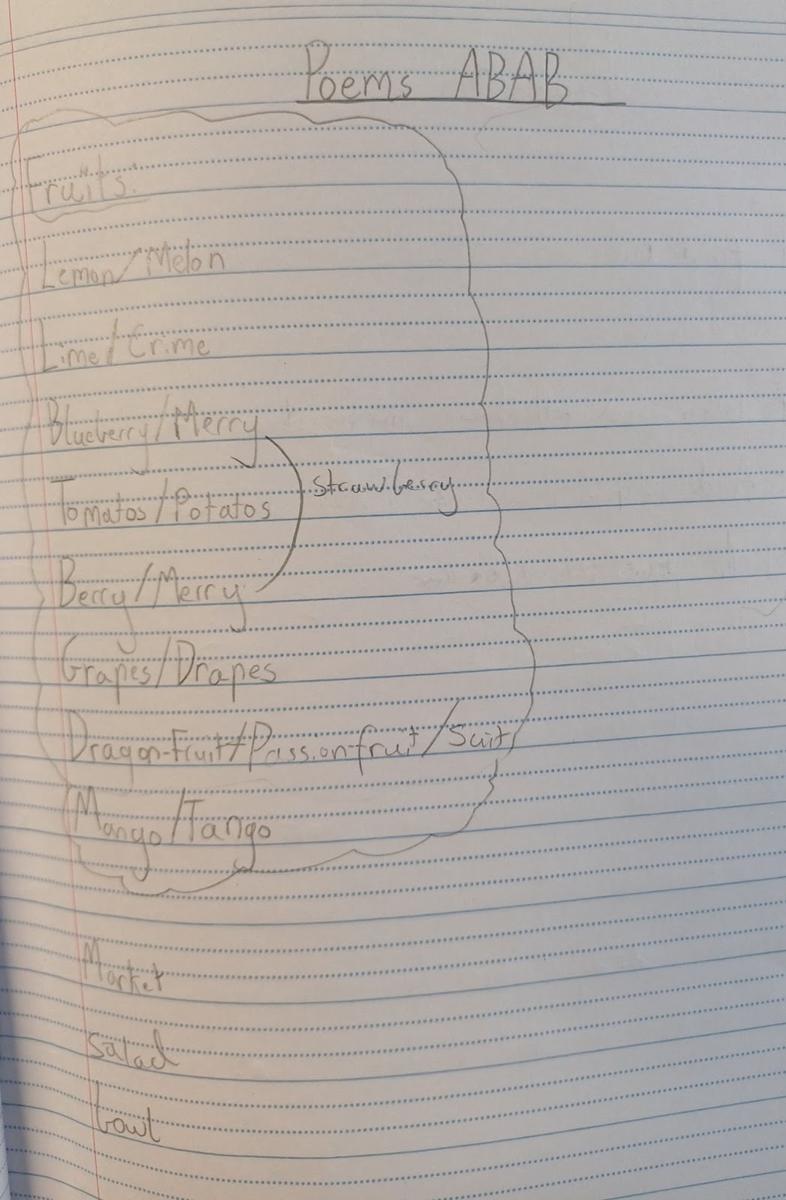 Poems ABAB
Fruits:
Lemon/Melon
Lime/Crime
Blueberry/Merry
Strawberry
Tomatos/Potatos
Berry/Merry
Grapes/Drapes
Dragon-Fruit/Passionfruit/Suit
Mango/Tango
Market
Salad
bowl